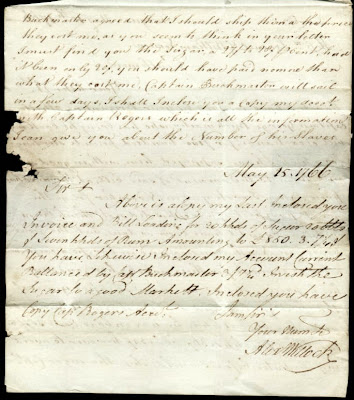 Buckmaster agreed that I should ship them at the price
they cost me, as you seem to think in your letter
I must find you the Sugar a
it been only you should have paid no more than
what they cost me, Captain Buckmaster will sail
in a few days, I shall Inclose you a Copy my
with Captain Rogers which is all the information
I can give you about the Number of his Slaves
May 15. 1766
Sir
Above is a Copy my last Inclosed you
Invoice and Bill Loading for 20 hhds of Sugar
& Seven hhds of Rum Amounting to £
You have likewise Inclosed my Account Current
Ballanced by Cap Buckmaster I wish the
Sugar to a good Markett. Inclosed you have
Copy Cap Rogers Acco
I am Sir
Your Hum
Alex Willock